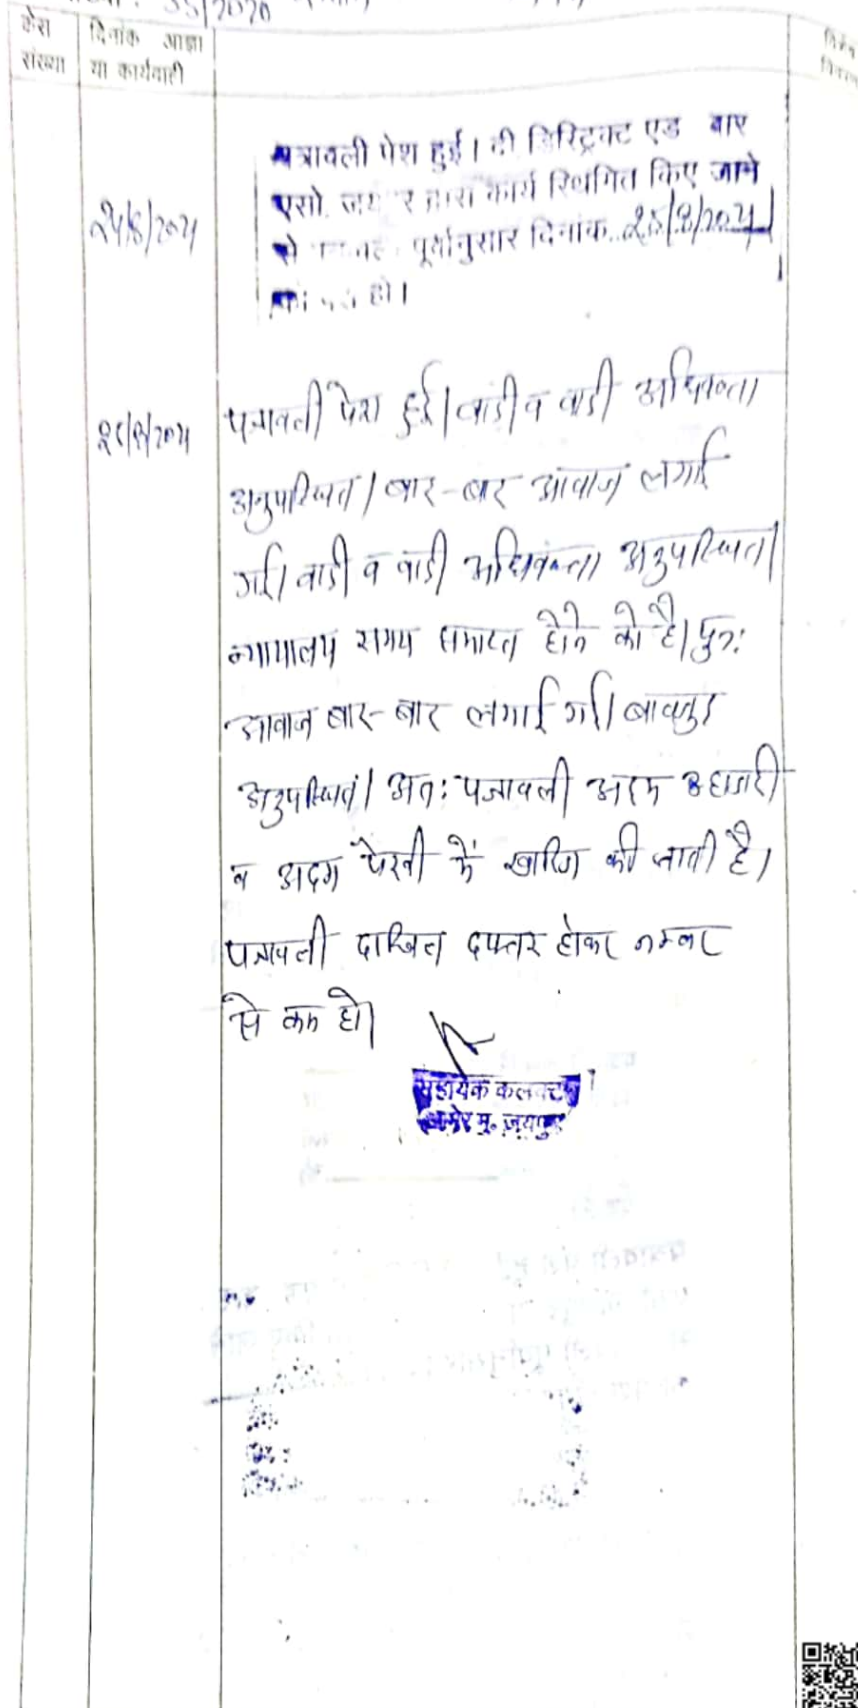 35/2020
केस संख्या
दिनांक आज्ञा या कार्यवाही
पत्रावली पेश हुई। दी डिस्ट्रिक्ट एड बार
एसो. जयपुर द्वारा कार्य स्थगित किए जाने
से पूर्वानुसार दिनांक..
को पेश हो।
पत्रावली पेश हुई। वादी व वादी अधिवक्ता
अनुपस्थित। बार-बार आवाज लगाई
गई। वादी व वादी अधिवक्ता अनुपस्थित।
न्यायालय समय समाप्त होने को है। पुनः
आवाज बार-बार लगाई गई। बावजुद
अनुपस्थित। अतः पत्रावली अदम हाजरी
व अदम पैरवी में खारिज की जाती है।
पत्रावली दाखिल दफ्तर होकर नम्बर
से कम हो।
सहायक कलक्टर
आमेर मु. जयपुर